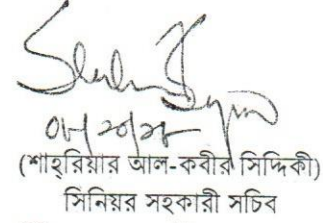 (শাহ্‌রিয়ার আল-কবীর সিদ্দিকী)
সিনিয়র সহকারী সচিব